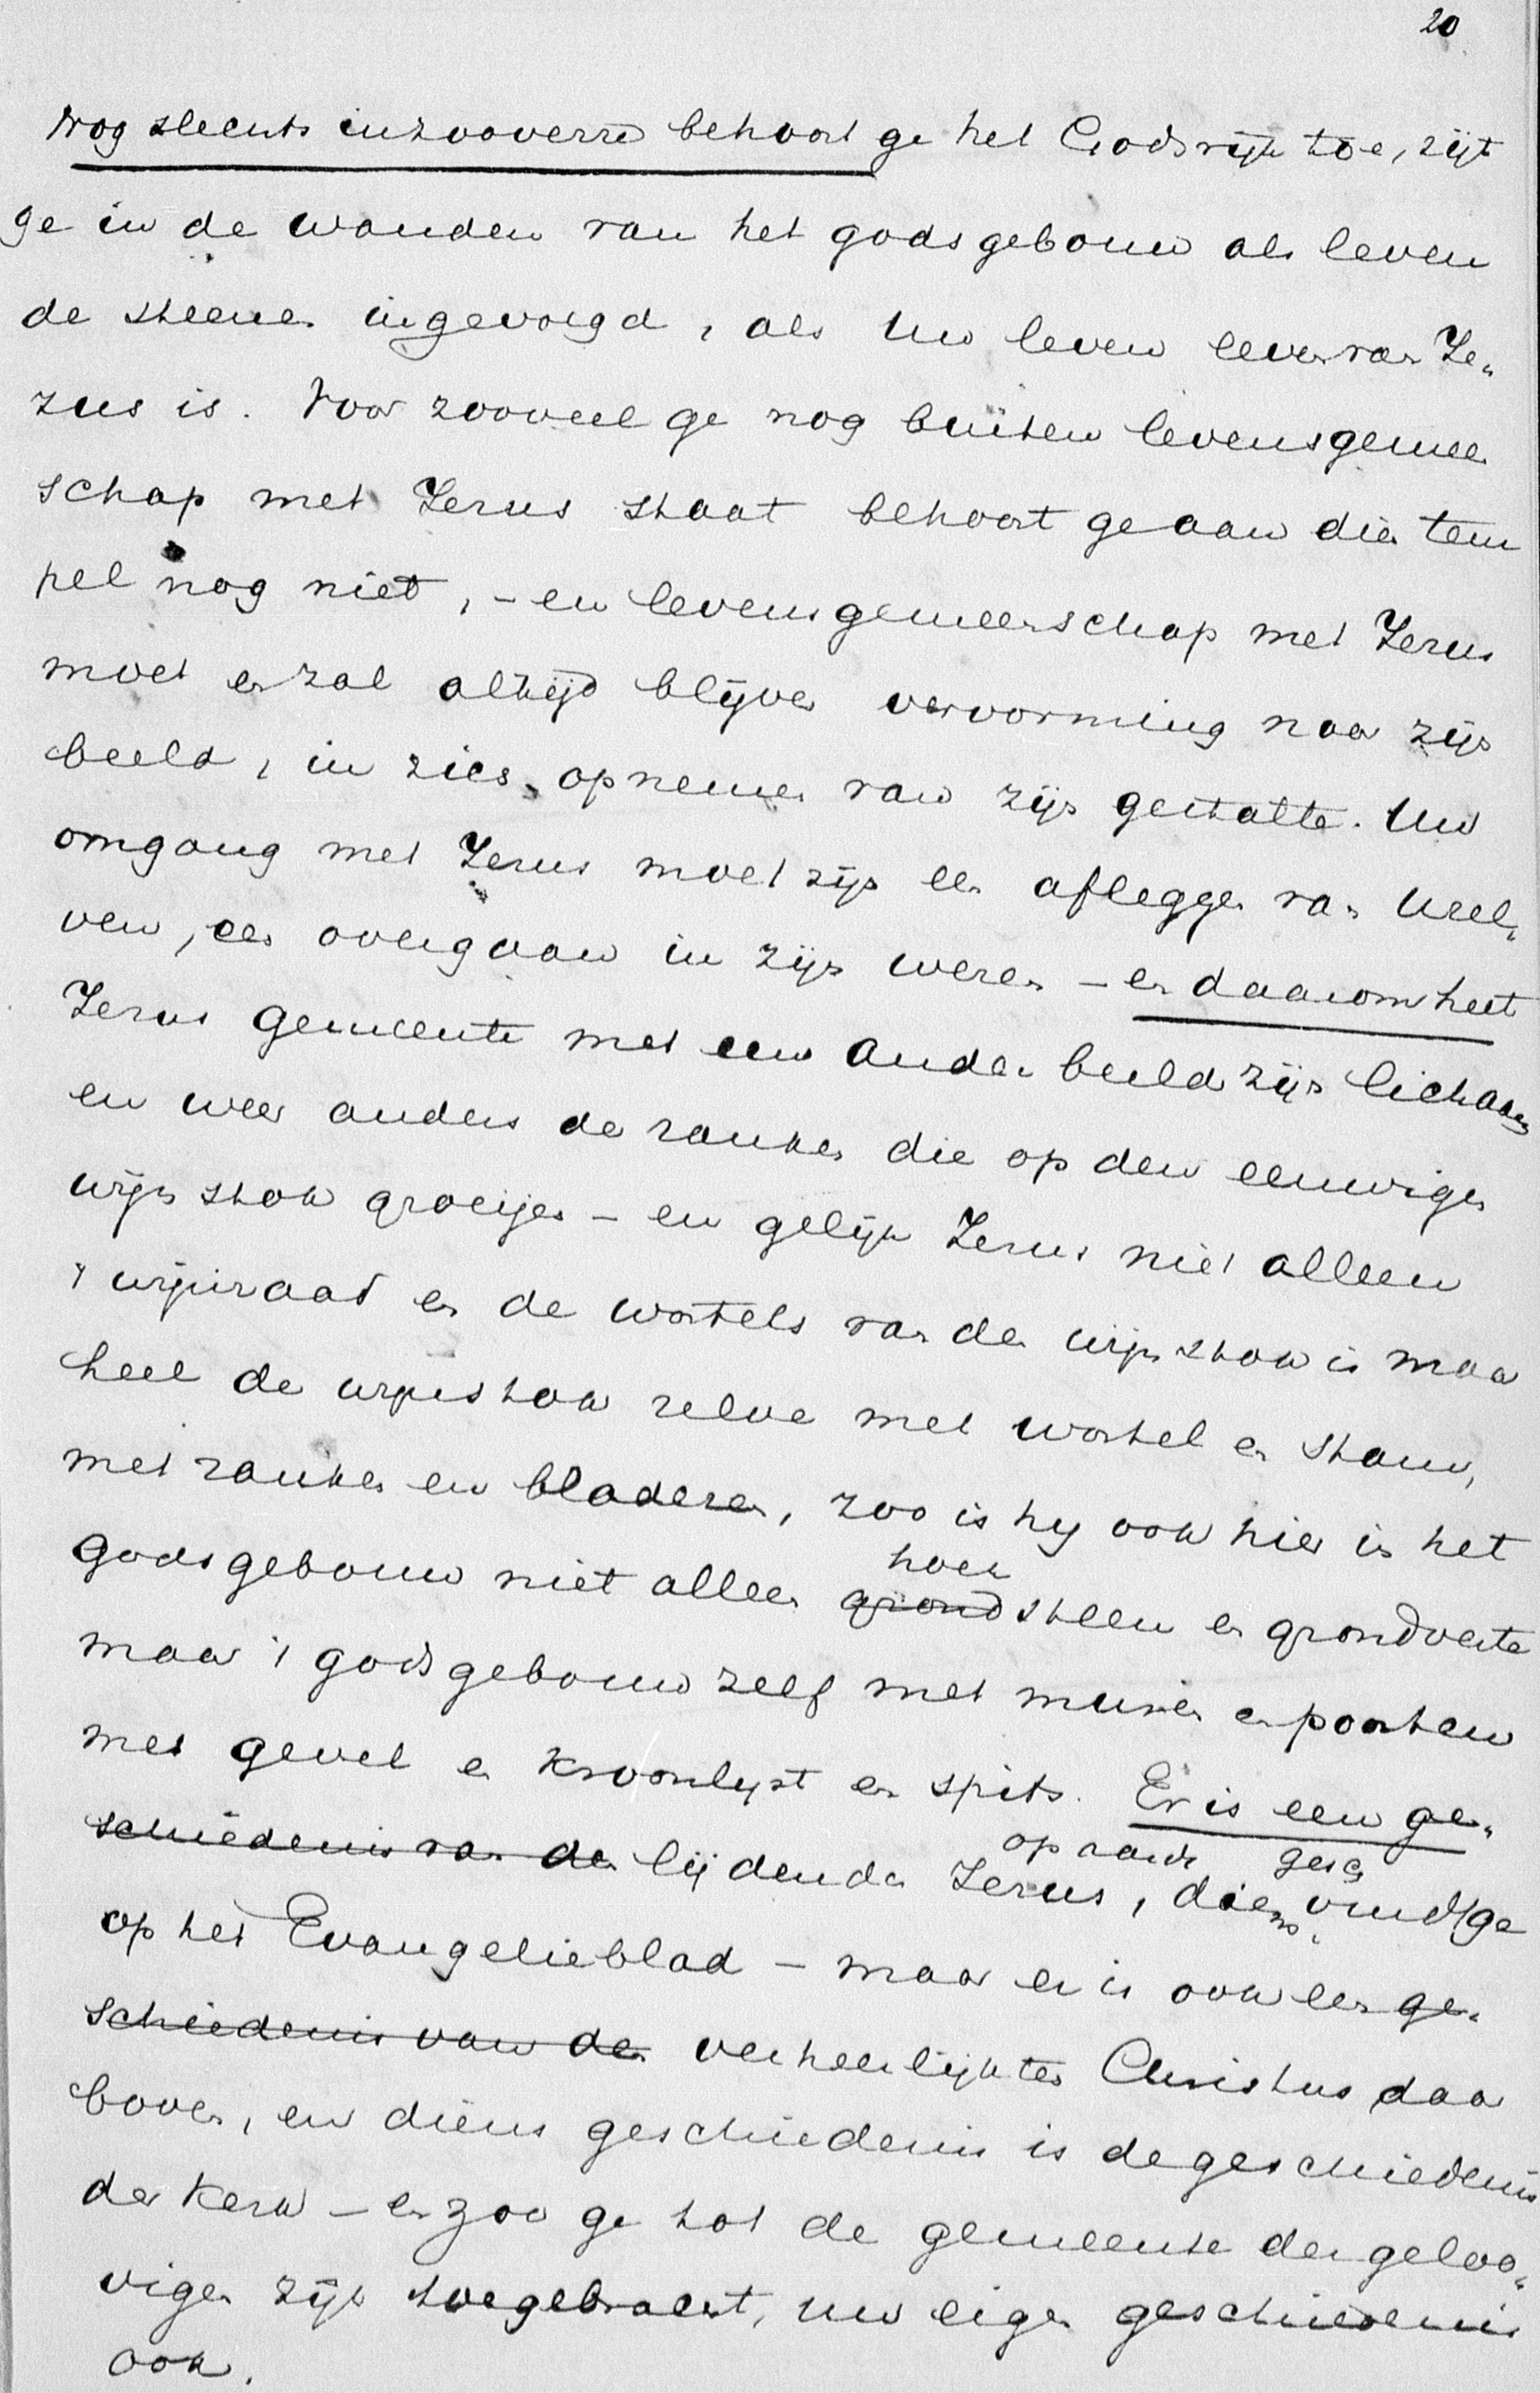 20
Nog slechts inzooverre behoort ge het Godsrijk toe, zijt
ge in de wanden van het godsgebouw als leven
de steenen ingevoegd, als Uw leven leven van Je„
zus is. Voor zooveel ge nog buiten levensgemeen
schap met Jezus staat behoort ge aan dien tem
pel nog niet, – en levensgemeenschap met Jezus
moet en zal altijd blijven vervorming naar zijn
beeld, in zich opnemen van zijn gestalte. Uw
omgang met Jezus moet zijn een afleggen van Uzel„
ven, een overgaan in zijn wezen – en daarom heet
Jezus gemeente met een ander beeld zijn lichaam
en weer anders de ranken die op den eeuwigen
wijnstok groeijen – en gelijk Jezus niet alleen
't wijnzaad en de wortels van den wijnstok is maar
heel de wijnstok zelve met wortel en stam,
met ranken en bladeren, zoo is hij ook hier in het
godsgebouw niet alleen grond hoek steen en grondveste
maar 't godsgebouw zelf met muren en poorten
met gevel en kroonlijst en spits. Er is een ge„
schiedenis van den lijdenden Jezus op aarde, diens gesch vindt ge
op het Evangelieblad – maar er is ook een ge„
schiedenis van den verheerlijkten Christus daar
boven, en diens geschiedenis is de geschiedenis
der Kerk – en zoo ge tot de gemeente der geloo„
vigen zijt toegebracht, uw eigen geschiedenis
ook.